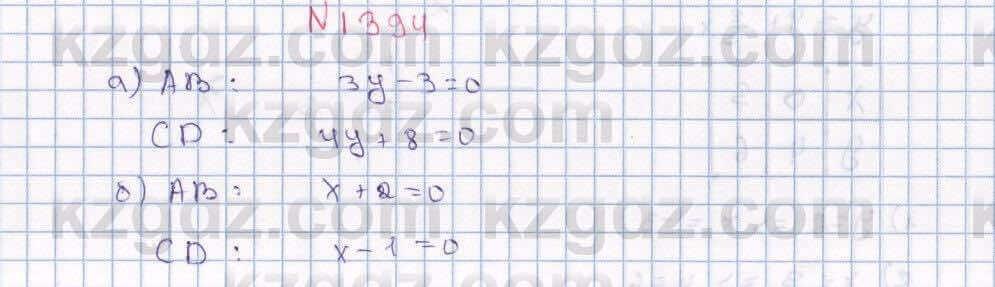 N1394
kzgdz.com kzgdz.com
а) AB: 3y-3=0
CD: 4y+8=0
kzgdz.com
б) AB: x+2=0
kzgdz.com kzgdz.com
CD: x-1=0